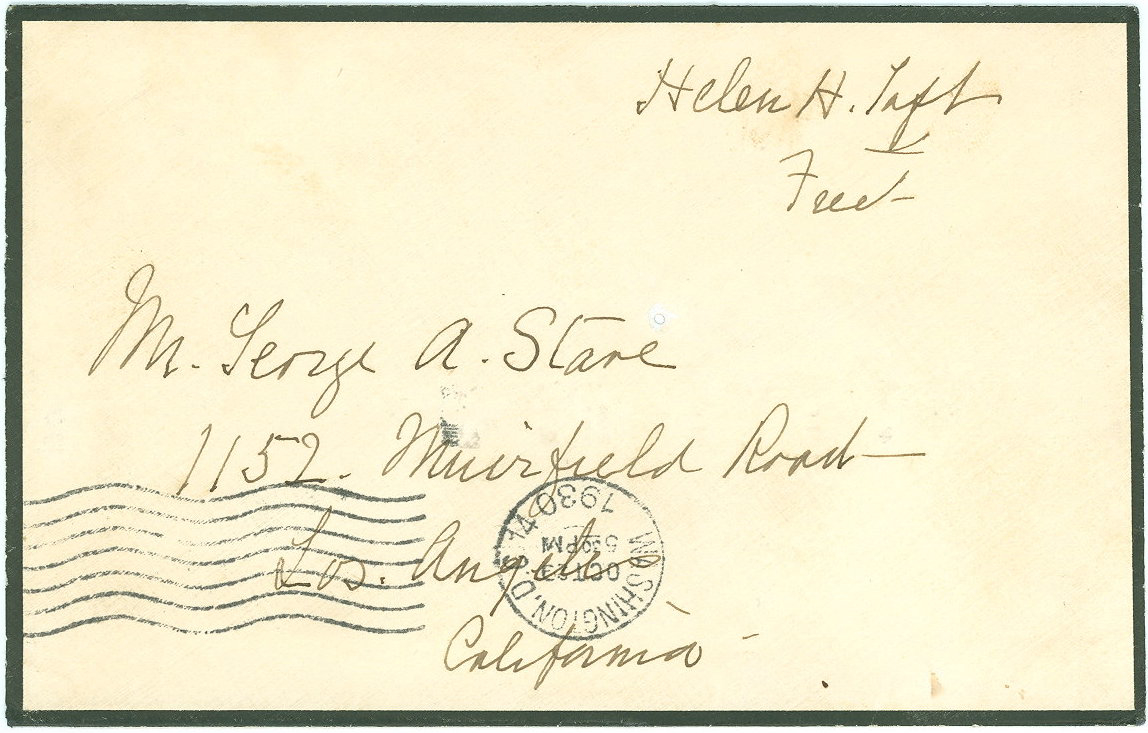 Helen H. Taft
Free
Mr. George A. Stare
1152. Muirfield Road
Los. Angeles
California
WASHINGTON, D.
OCT
5 30 PM
1930